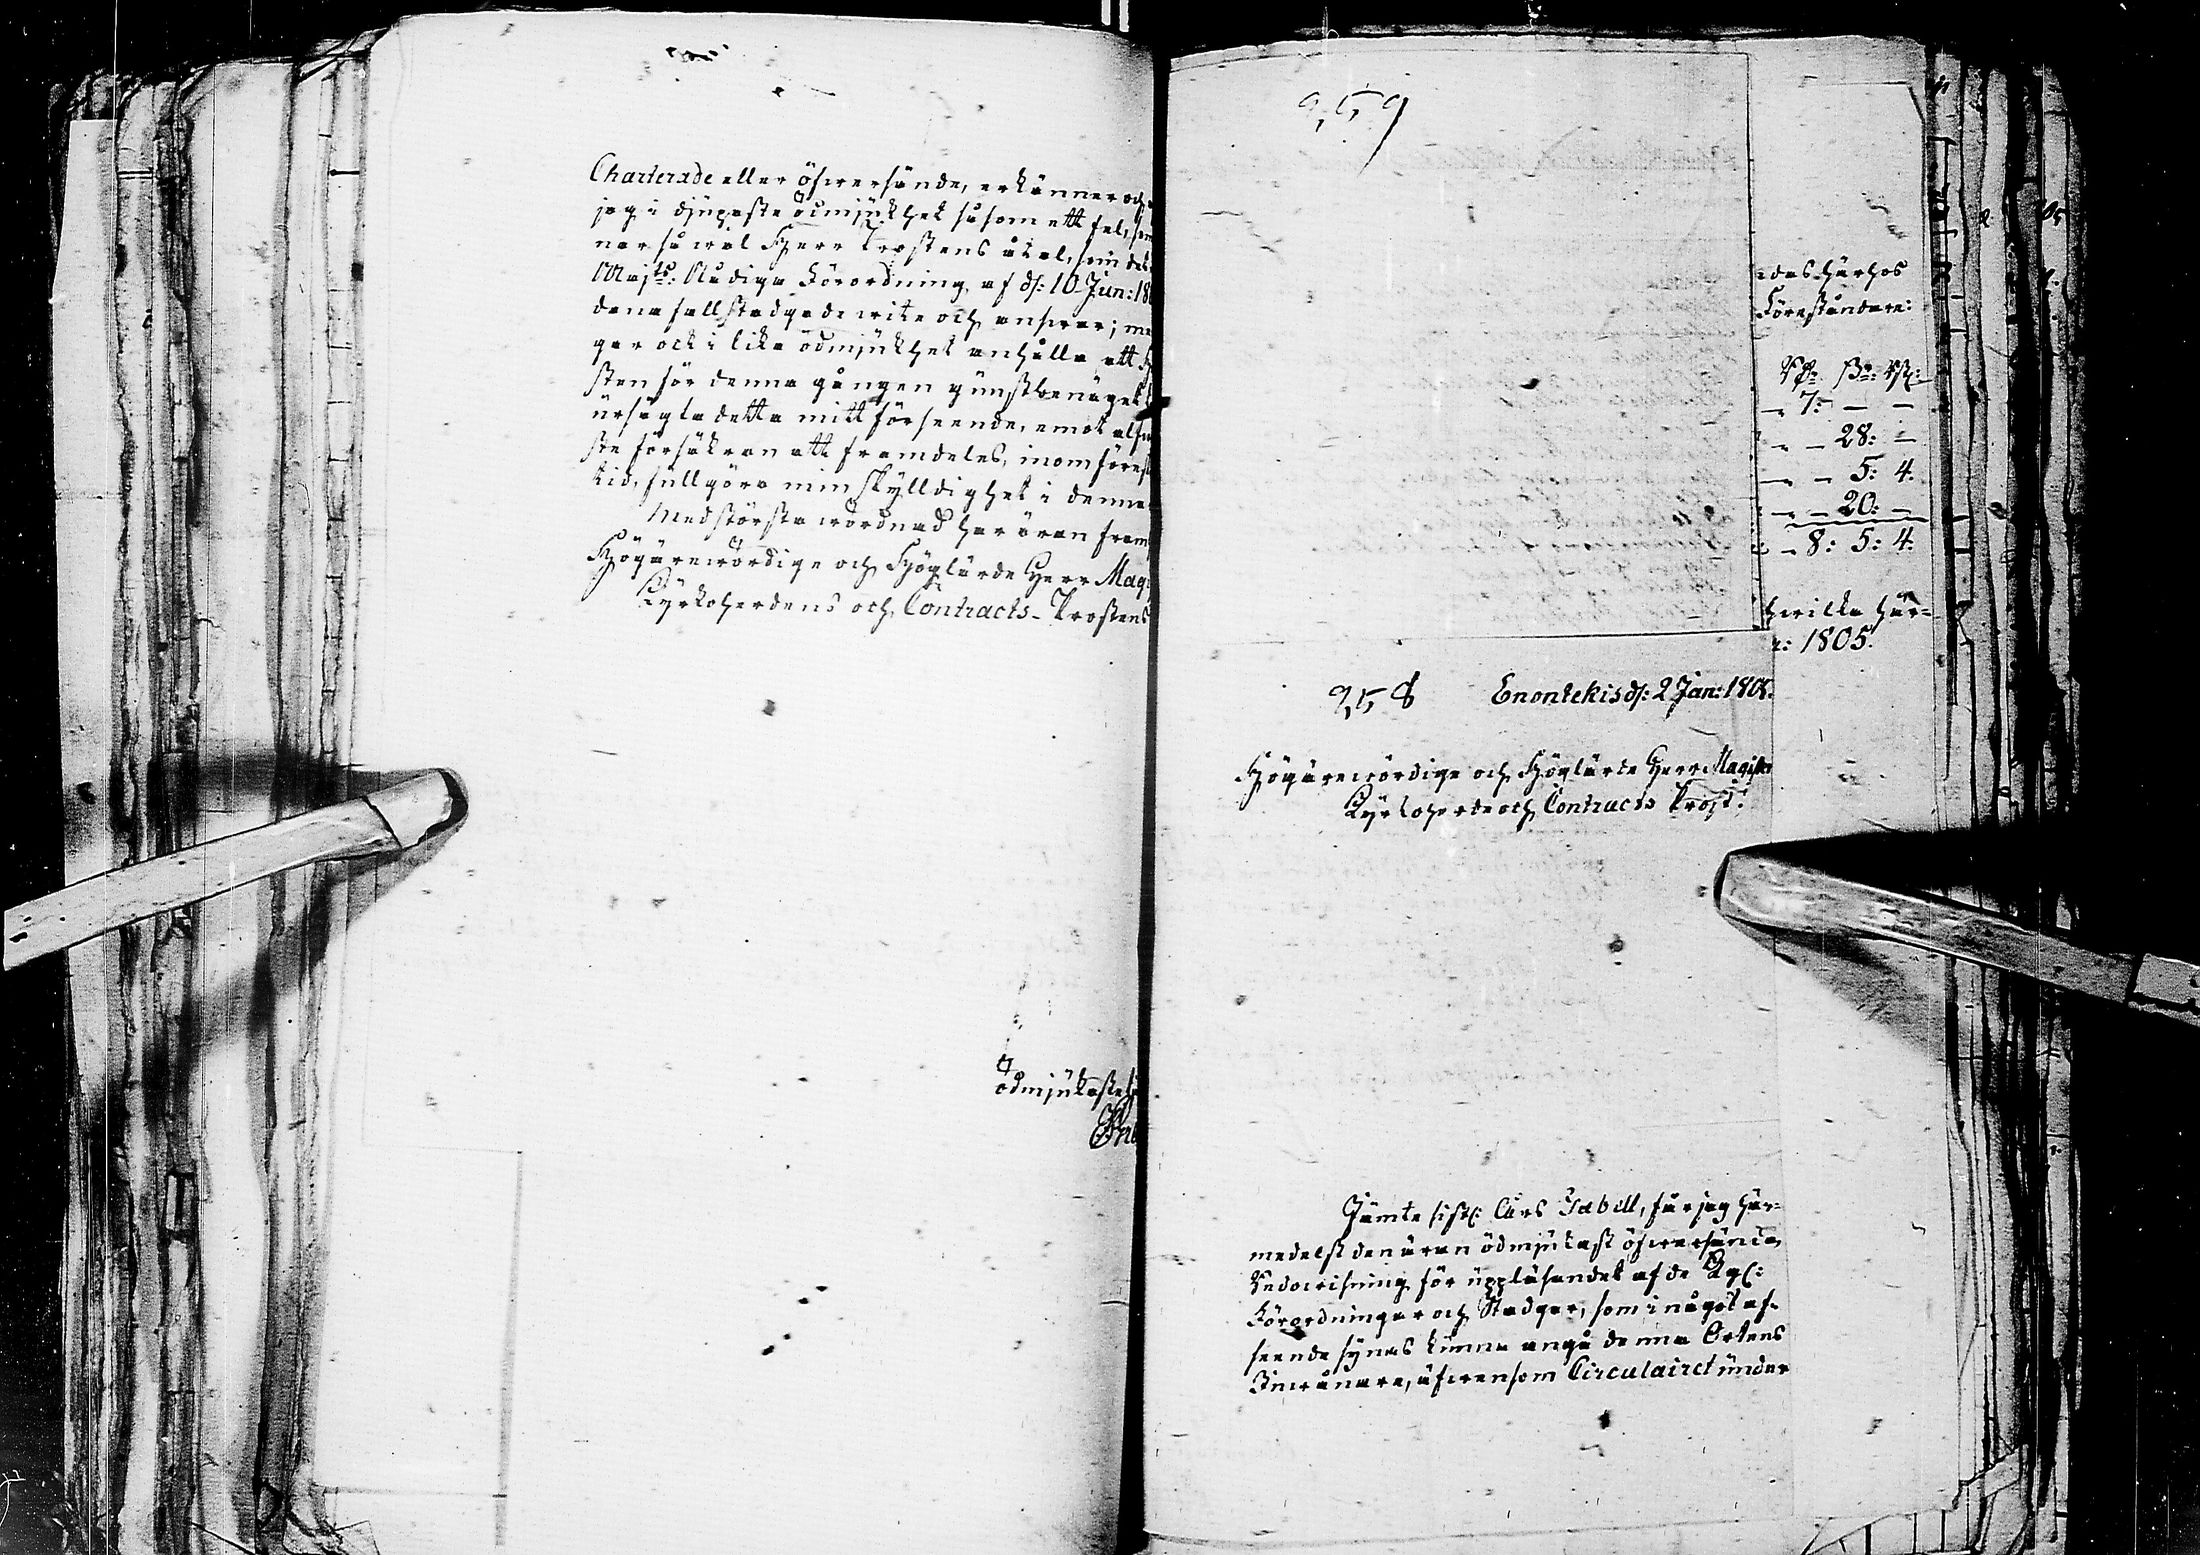 Charterade eller öfwersände, erkänner och
jag i djupaste ödmjukhet såsom ett fel, som
när så wäl Herr Prostens åtal, som des
Majts: Nådiga Förordning af d: 10 Jun: 18
dana fall stadgade wite och answar; me
gar ock i lika ödmjukhet anhålla att H
sten för denna gången gunstbenäget
ursägta detta mitt förseende, emot alfw
ste försäkran att framdeles, inom föres
tid, fullgöra min skylldighet i denna
Med största wördnad har äran fram
Högärewördige och Höglärde Herr Mag:
Kyrkoherdens och Contracts-Prostens
ödmjukaste
259
des härhos
Föreståndare:
7: — —
28: —
5: 4.
20: —
8: 5: 4.
hwilka här=
r: 1805.
258 Enontekis d: 2 Jan: 1806.
Högärewördige och Höglärde Herr Magister
Kyrkoherde och Contracts Prost!
Jämte sistl: Års Tabell, får jag här=
medelst den äran ödmjukast öfwersända
Redowisning för uppläsandet af de Kgl:
Förordningar och Stadgar, som i något af=
seende synas kunna angå denna Ortens
Inwånare, äfwensom Circulairet under